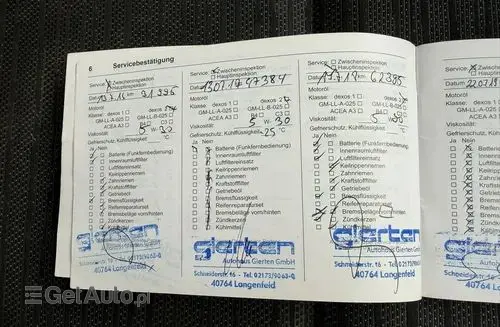 6 Servicebestätigung
Service: Zwischeninspektion
Hauptinspektion
Datum
Motoröl
Klasse: dexos 1 dexos 2
GM-LL-A-025 GM-LL-B-025
ACEA A3 B4 C3
Viskosität: 5 W- 30
Gefrierschutz, Kühlflüssigkeit
Ja Nein
Batterie (Funkfernbedienung)
Innenraumluftfilter
Luftfiltereinsatz
Keilrippenriemen
Zahnriemen
Kraftstofffilter
Getriebeöl
Bremsflüssigkeit
Reifenreparaturset
Bremsbeläge vorn/hinten
Zündkerzen
40764 Langenfeld
Service: Zwischeninspektion
Hauptinspektion
Datum 13.07.17 47384
Motoröl
Klasse: dexos 1 dexos 2
GM-LL-A-025 GM-LL-B-025
ACEA A3 B4 C3
Viskosität: 5 W- 30
Gefrierschutz, Kühlflüssigkeit -25 °C
Ja Nein
Batterie (Funkfernbedienung)
Innenraumluftfilter
Luftfiltereinsatz
Keilrippenriemen
Zahnriemen
Kraftstofffilter
Getriebeöl
Bremsflüssigkeit
Reifenreparaturset
Bremsbeläge vorn/hinten
Zündkerzen
Kühlmittel
gierten
Autohaus Gierten GmbH
Schneiderstr. 16 - Tel. 02173/9063-0
40764 Langenfeld
Service: Zwischeninspektion
Hauptinspektion
Datum 62385
Motoröl
Klasse: dexos 1 dexos 2
GM-LL-A-025 GM-LL-B-025
ACEA A3 B4 C3
Viskosität: 5 W- 30
Gefrierschutz, Kühlflüssigkeit
Ja Nein
Batterie (Funkfernbedienung)
Innenraumluftfilter
Luftfiltereinsatz
Keilrippenriemen
Zahnriemen
Kraftstofffilter
Getriebeöl
Bremsflüssigkeit
Reifenreparaturset
Bremsbeläge vorn/hinten
Zündkerzen
gierten
Autohaus Gierten GmbH
Schneiderstr. 16 - Tel. 02173/9063-0
40764 Langenfeld
Datum
Ja Nein
GetAuto.PL